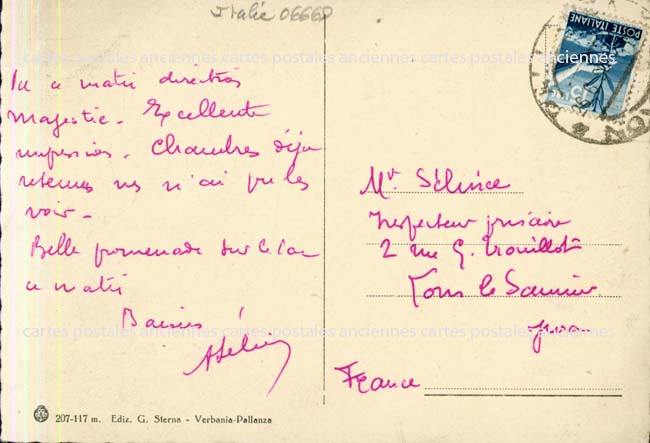 Italie 06668
POSTE ITALIANE
Vu ce matin direction
Majestic. Excellente
impression. Chambres déjà
retenues mais n'ai pu les
voir -
Belle promenade sur le lac
ce matin
Baisers
Mr.
Inspecteur primaire
2 rue G. Trouillot
Lons le Saunier
Jura
France
cartes postales anciennes cartes postales anciennes cartes postales anciennes
cartes postales anciennes cartes postales anciennes cartes postales anciennes
207-117 m. Ediz. G. Sterna - Verbania-Pallanza